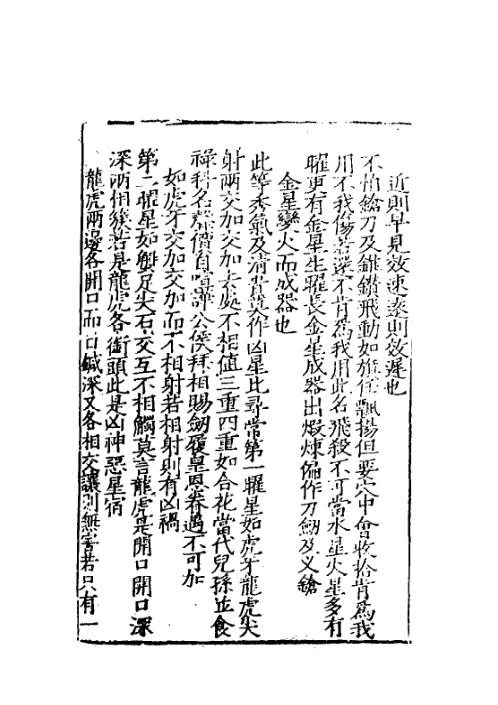 近則早見效速遠則效遲也
不怕鎗刀及錐鑽飛動如旌任飄揚但要穴中會收拾肯爲我
用不我傷若還不肯爲我用此名飛殺不可當水星火星多有
曜更有金星生曜長金星成器出煅煉偏作刀劒及义鎗
金星變火而成器也
此等秀氣及清貴莫作凶星比尋常第一曜星如虎牙龍虎尖
射兩交加交加去處不相値三重四重如合花當代兒孫並食
祿科名聲價自喧譁公侯拜相賜劒履皇恩眷遇不可加
如虎牙交加交加而不相射若相射則有凶禍
第二曜星如蟹足尖右交互不相觸莫言龍虎是開口開口深
深兩相簇若是龍虎各銜頭此是凶神惡星宿
龍虎兩邊各開口而口鍼深又各相交讓則無害若只有一